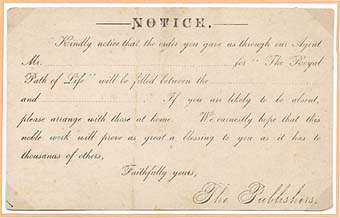 NOTICE.
"Kindly notice that the order you gave us through our Agent
Mr. for "The Royal
Path of Life" will be filled between the
and If you are likely to be absent,
please arrange with those at home. We earnestly hope that this
noble work will prove as great a blessing to you as it has to
thousands of others,
Faithfully yours,
The Publishers.